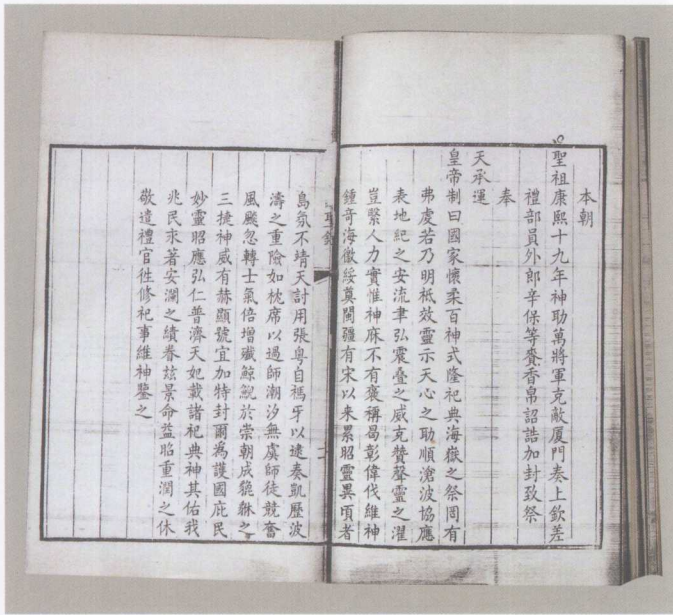 本朝
聖祖康熙十九年神助萬將軍克敵厦門奏上欽差
禮部員外郎辛保等賫香帛詔誥加封致祭
奉
天承運
皇帝制曰國家懷柔百神式隆祀典海嶽之祭罔有
弗虔若乃明祗效靈示天心之助順滄波協應
表地紀之安流聿弘震疊之威克贊聲靈之濯
豈繄人力實惟神庥不有褒稱曷彰偉伐維神
鍾奇海徼綏奠閩疆有宋以來累昭靈異頃者
島氛不靖天討用張粤自禡牙以逮奏凱歷波
濤之重險如枕席以過師潮汐無虞師徒競奮
風飈忽轉士氣倍增殲鯨鯢於崇朝成貔貅之
三捷神威有赫顯號宜加特封爾為護國庇民
妙靈昭應弘仁普濟天妃載諸祀典神其佑我
兆民永著安瀾之績眷兹景命益昭重潤之休
敬遣禮官往修祀事維神鑒之